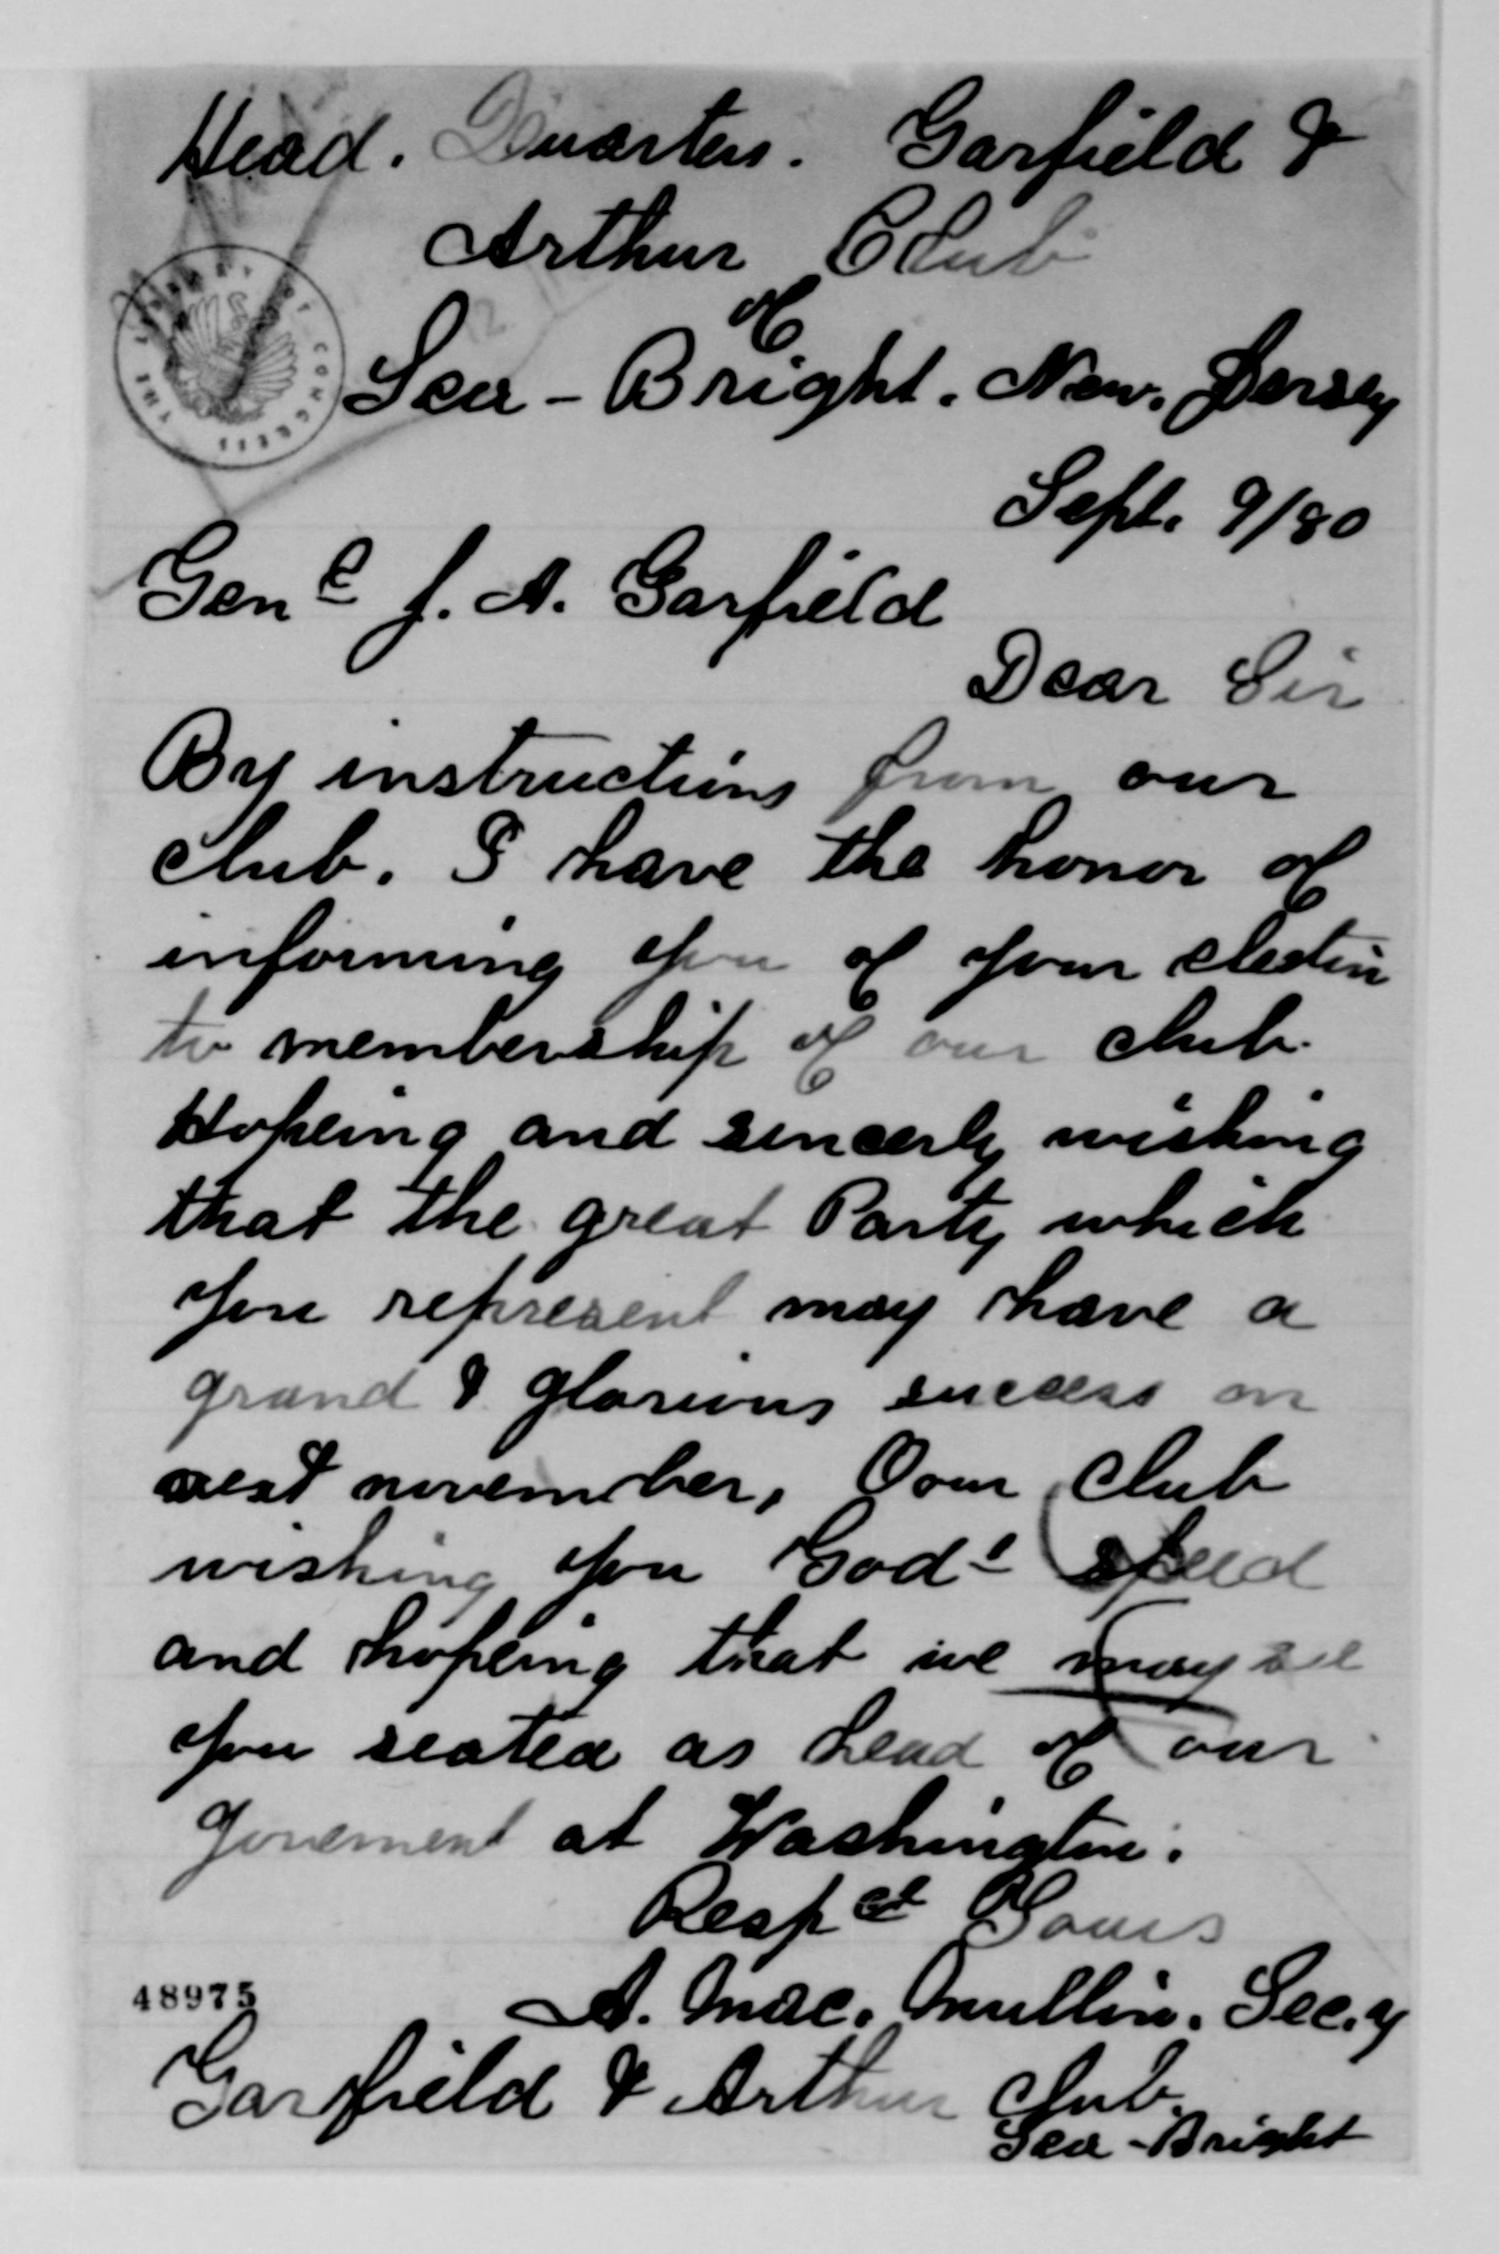 Head. Quarters. Garfield &
Arthur Club
of
Sea-Bright. New. Jersey
Sept. 9/80
Genl J. A. Garfield
Dear Sir
By instructions from our
club. I have the honor of
informing you of your election
to membership of our club.
Hopeing and sincerly wishing
that the great Party which
you represent may have a
grand & glorious success on
next november, Our club
wishing you God's speed
and hopeing that we may see
you seated as head of our
goverment at Washington.
Respct Yours
A. Mac. Mullin. Sec.y
Garfield & Arthur Club.
Sea-Bright
48975
THE LIBRARY OF CONGRESS